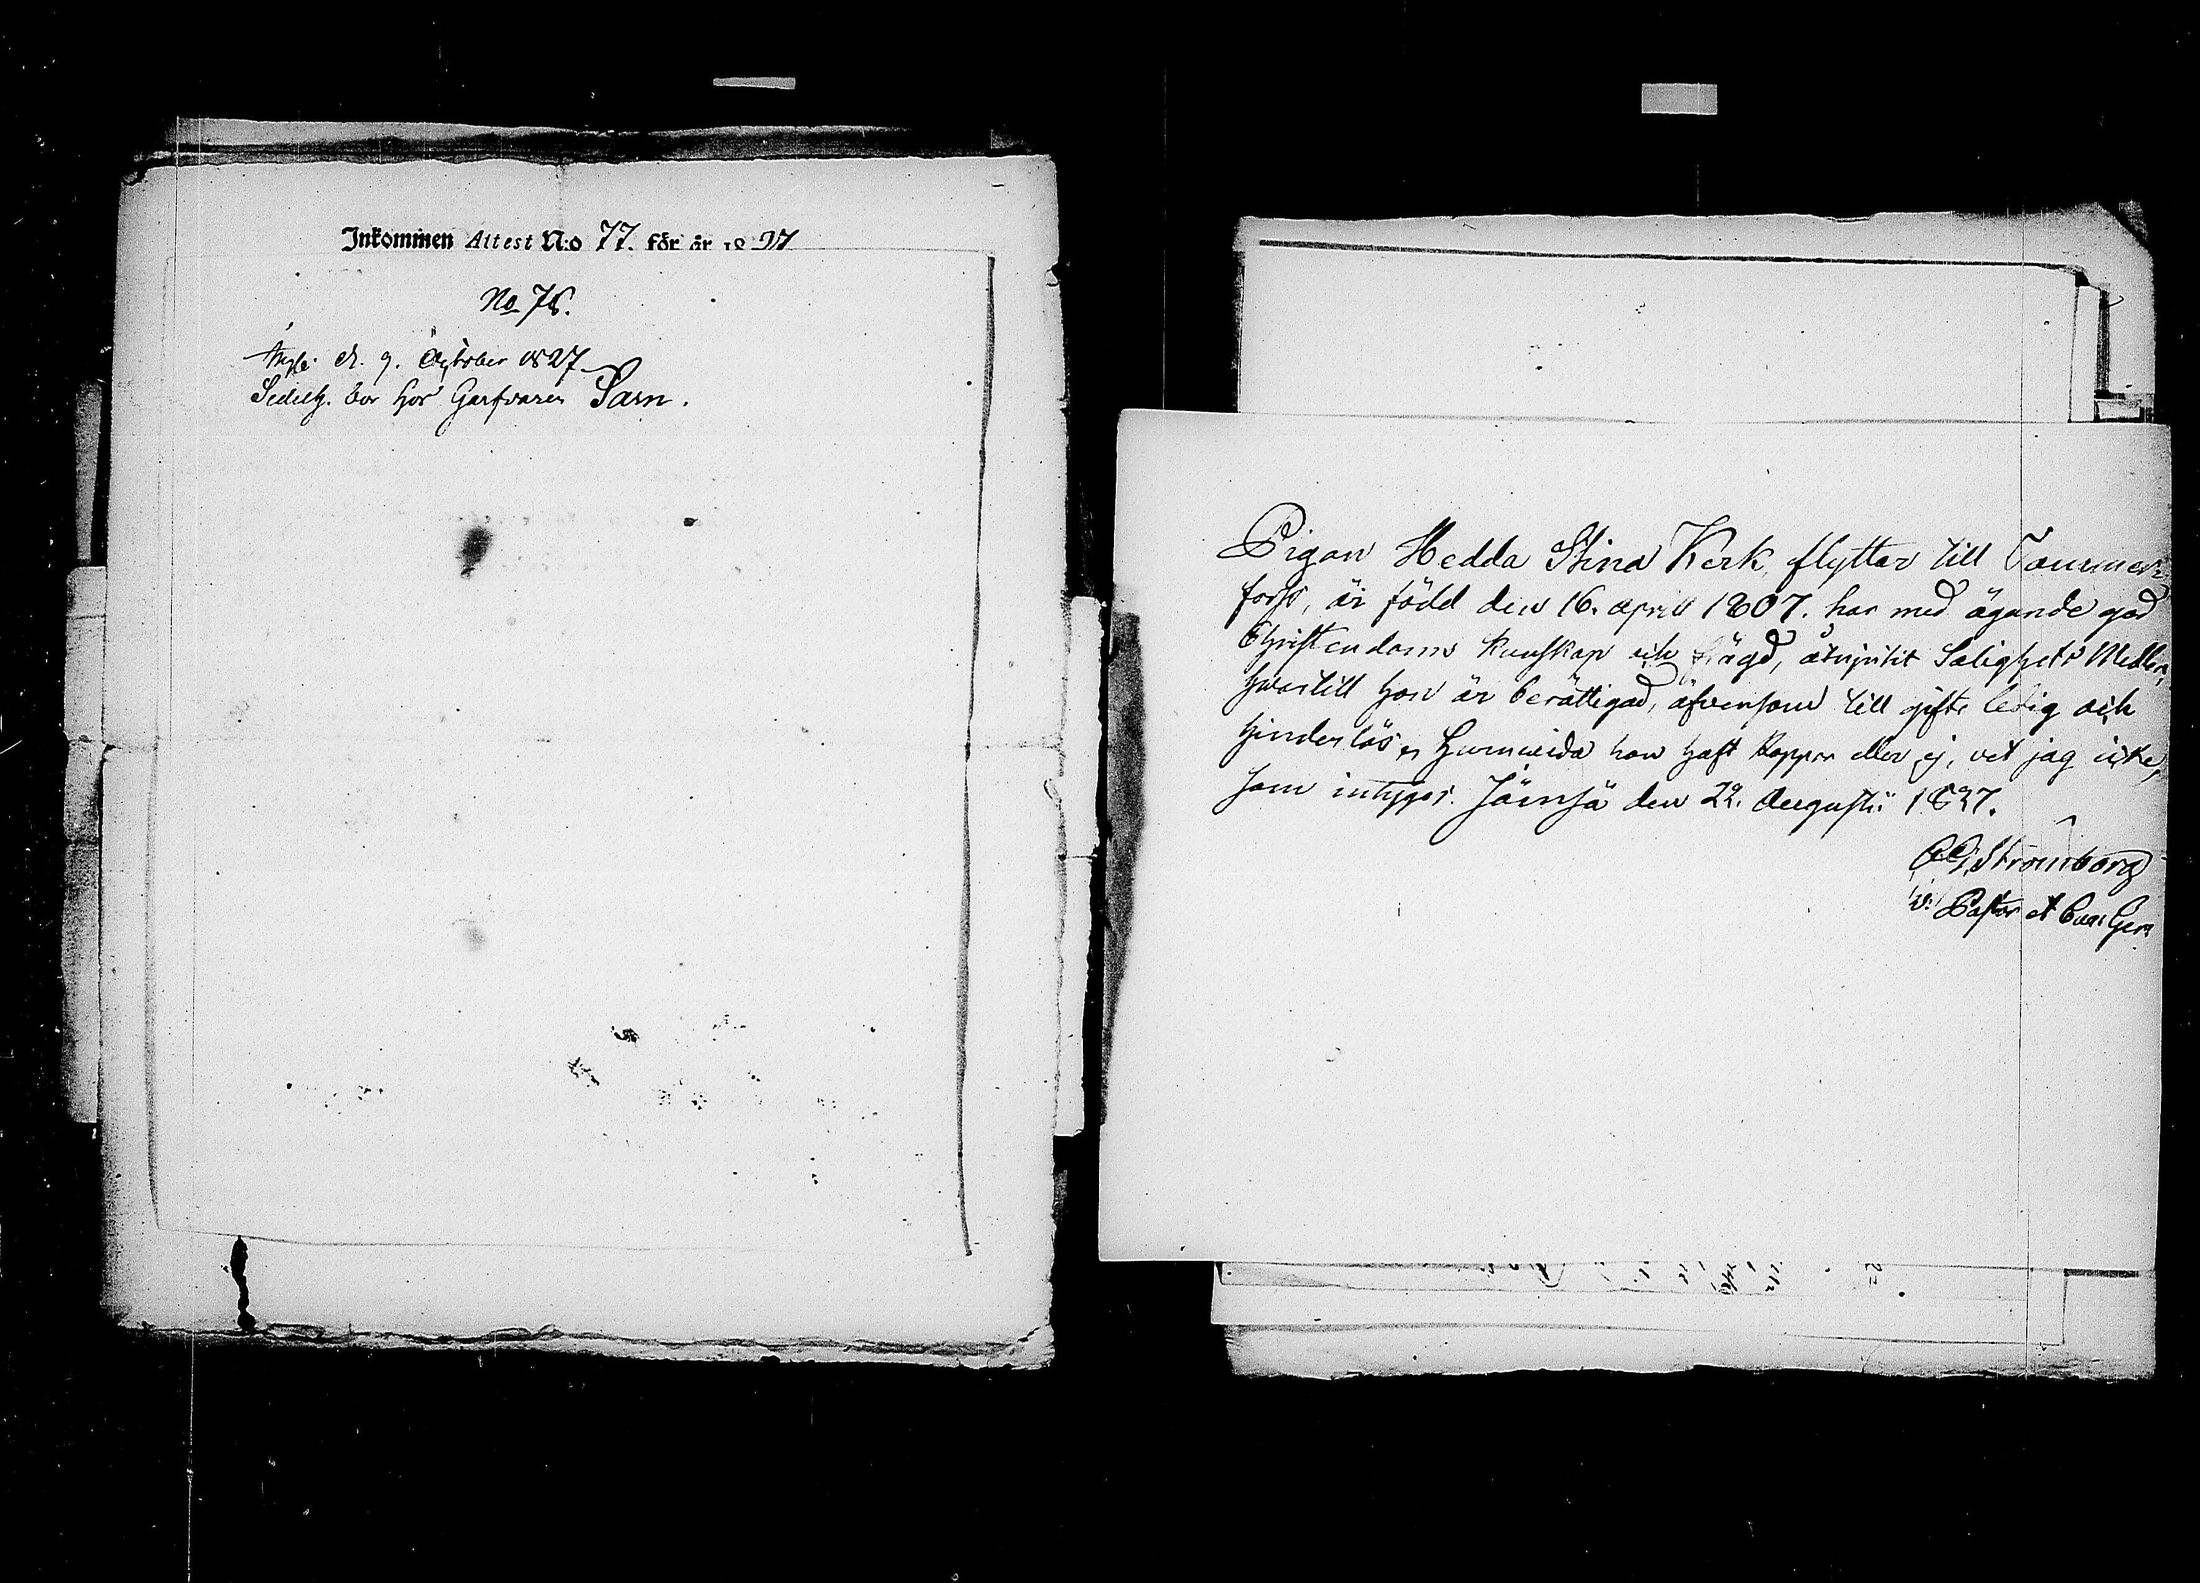 Inkommen Attest N:o 77. för år 1827
No 76.
d. 9. October 1827
bor hos Garfvaren Sarn.
Pigan Hedda Stina Kerk, flyttar till Tammer-
forss, är född den 16. april 1807. har med ägande god
Christendoms kunskap och frägd, åtnjutit Salighets Medlen,
hvartill hon är berättigad, äfvensom till gifte ledig och
hinderlös, huruvida hon haft koppor eller ej, vet jag icke,
som intygar. Jämsä den 22. Augusti 1827.
Strömborg
v. Pastor et